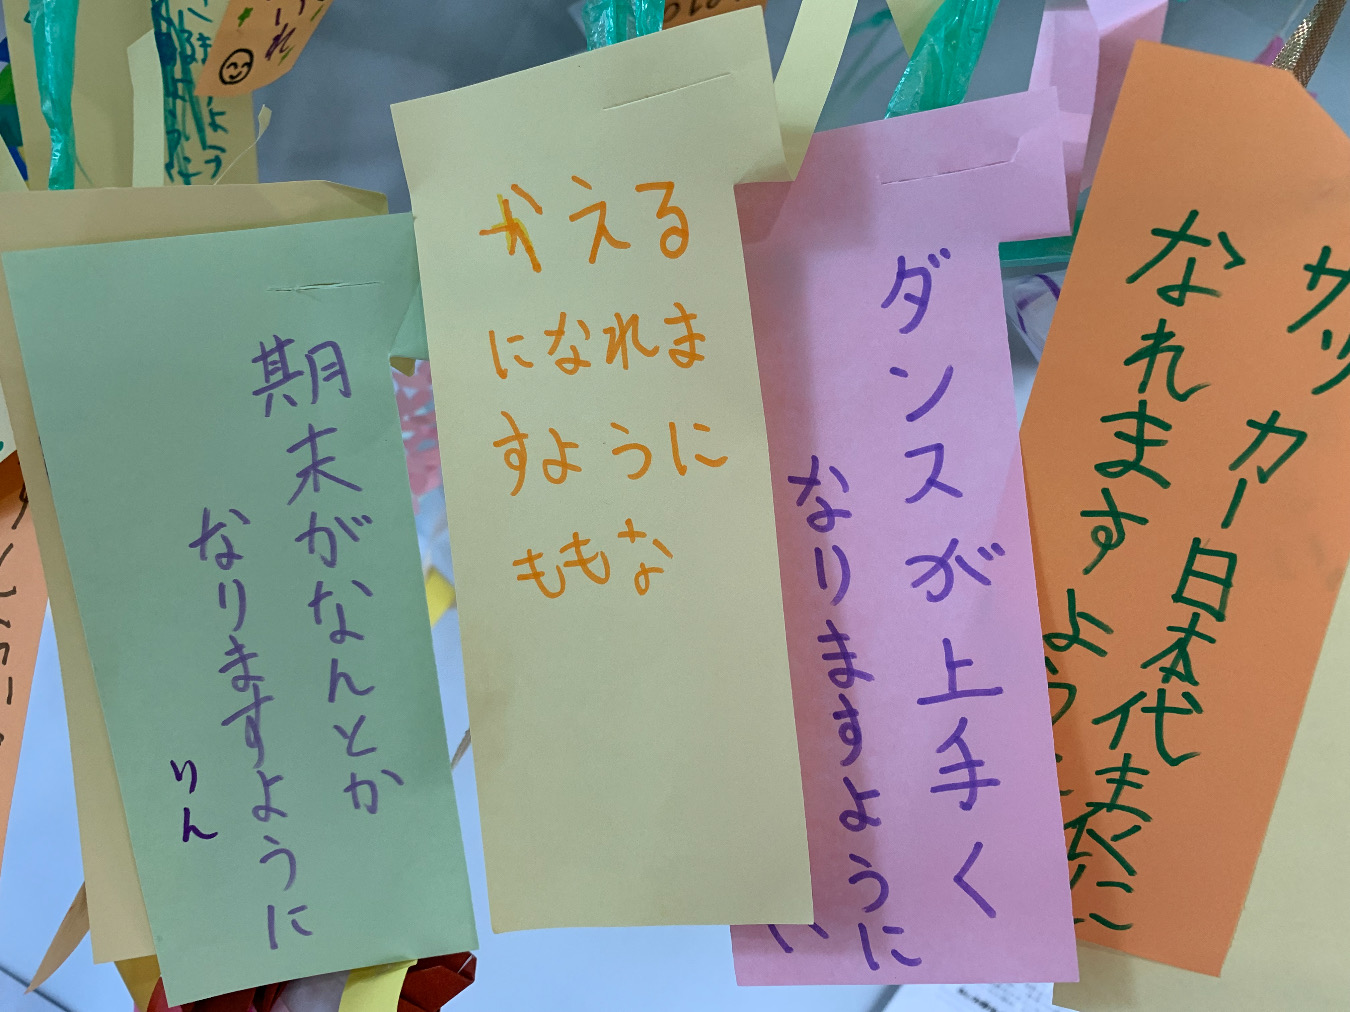 期末がなんとか
なりますように
りん
かえる
になれま
すように
ももな
ダンスが上手く
なりますように
サッカー日本代表に
なれますように